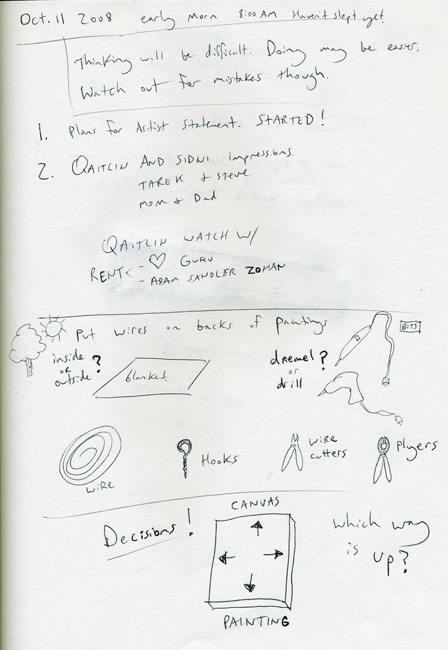 Oct. 11 2008 early morn 8:00 AM Haven't slept yet.
Thinking will be difficult. Doing may be easier.
Watch out for mistakes though.
1. Plans for Artist Statement. STARTED!
2. QAITLIN AND SIDNI impressions.
TAREK & Steve
Mom & Dad
QAITLIN WATCH W/
RENT < - ♡ GURU
- ADAM SANDLER ZOHAN
Put wires on backs of paintings
inside
or
outside?
blanket
dremel?
or
drill
BITS
wire
Hooks
wire
cutters
Plyers
Decisions!
CANVAS
PAINTING
which way
is up?